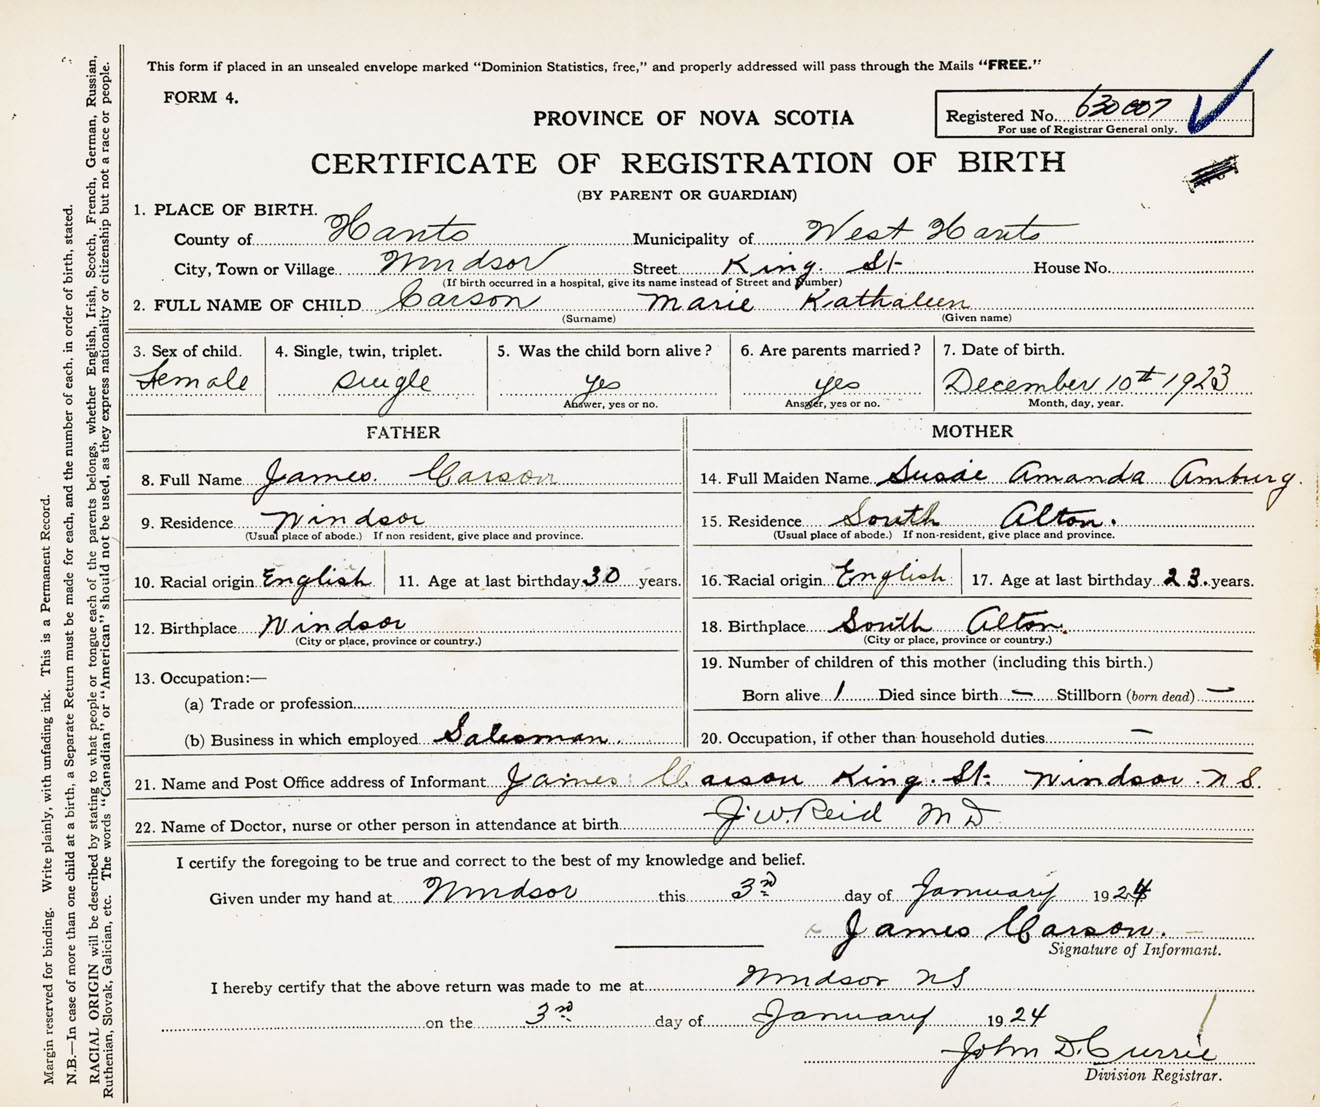 This form if placed in an unsealed envelope marked "Dominion Statistics, free," and properly addressed will pass through the Mails "FREE."
FORM 4.
PROVINCE OF NOVA SCOTIA
Registered No. 630007
For use of Registrar General only.
CERTIFICATE OF REGISTRATION OF BIRTH
(BY PARENT OR GUARDIAN)
1. PLACE OF BIRTH.
County of Hants Municipality of West Hants
City, Town or Village. Windsor Street King. St. House No.
(If birth occurred in a hospital, give its name instead of Street and Number)
2. FULL NAME OF CHILD Carson Marie Kathaleen
(Surname) (Given name)
3. Sex of child. 4. Single, twin, triplet. 5. Was the child born alive? 6. Are parents married? 7. Date of birth.
Female Single yes yes December 10th 1923
Answer, yes or no. Answer, yes or no. Month, day, year.
FATHER
8. Full Name James. Carson
9. Residence Windsor
(Usual place of abode.) If non resident, give place and province.
10. Racial origin English 11. Age at last birthday 30 years.
12. Birthplace Windsor
(City or place, province or country.)
13. Occupation:—
(a) Trade or profession
(b) Business in which employed Salesman.
MOTHER
14. Full Maiden Name Susie Amanda Amburg.
15. Residence South Alton.
(Usual place of abode.) If non-resident, give place and province.
16. Racial origin English 17. Age at last birthday 23. years.
18. Birthplace South Alton.
(City or place, province or country.)
19. Number of children of this mother (including this birth.)
Born alive 1 Died since birth — Stillborn (born dead) —
20. Occupation, if other than household duties —
21. Name and Post Office address of Informant James Carson King. St. Windsor. N S.
22. Name of Doctor, nurse or other person in attendance at birth J. W. Reid M D
I certify the foregoing to be true and correct to the best of my knowledge and belief.
Given under my hand at Windsor this 3rd day of January 1924
James Carson.
Signature of Informant.
I hereby certify that the above return was made to me at Windsor NS
on the 3rd day of January 1924
John D. Currie
Division Registrar.
Margin reserved for binding. Write plainly, with unfading ink. This is a Permanent Record.
N.B.—In case of more than one child at a birth, a Separate Return must be made for each, and the number of each, in order of birth, stated.
RACIAL ORIGIN will be described by stating to what people or tongue each of the parents belongs, whether English, Irish, Scotch, French, German, Russian,
Ruthenian, Slovak, Galician, etc. The words "Canadian" or "American" should not be used, as they express nationality or citizenship but not a race or people.